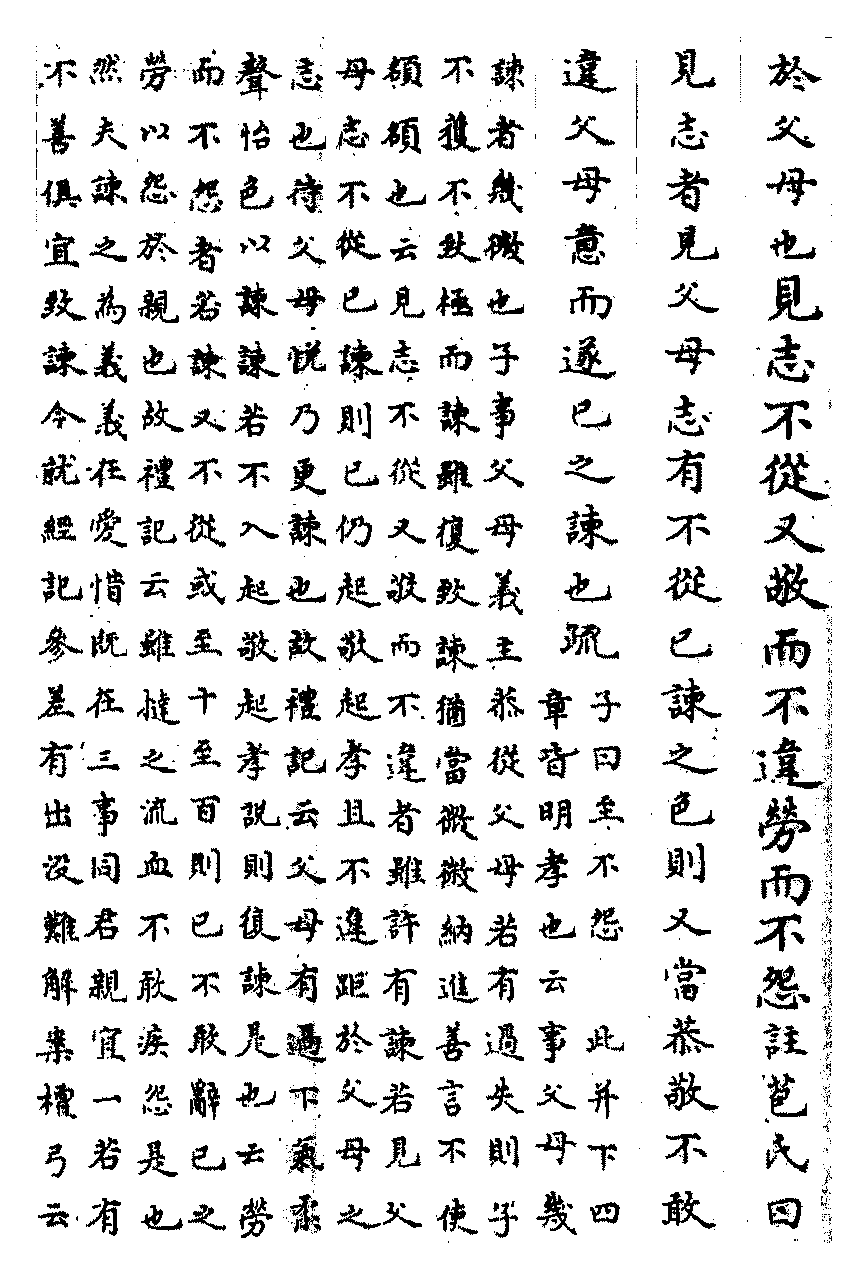 於父母也見志不從又敬而不違勞而不怨註苞氏曰
見志者見父母志有不從已諫之色則又當恭敬不敢
違父母意而遂已之諫也疏
子曰至不怨　此并下四
章皆明孝也云事父母幾
諫者幾微也子事父母義主恭從父母若有過失則子
不獲不致極而諫雖復致諫猶當微微納進善言不使
額額也云見志不從又敬而不違者雖許有諫若見父
母志不從已諫則已仍起敬起孝且不違距於父母之
志也待父母悅乃更諫也故禮記云父母有過下氣柔
聲怡色以諫諫若不入起敬起孝說則復諫是也云勞
而不怨者若諫又不從或至十至百則已不敢辭已之
勞以怨於親也故禮記云雖撻之流血不敢疾怨是也
然夫諫之為義義在愛惜既在三事同君親宜一若有
不善俱宜致諫今就經記參差有出沒難解案檀弓云